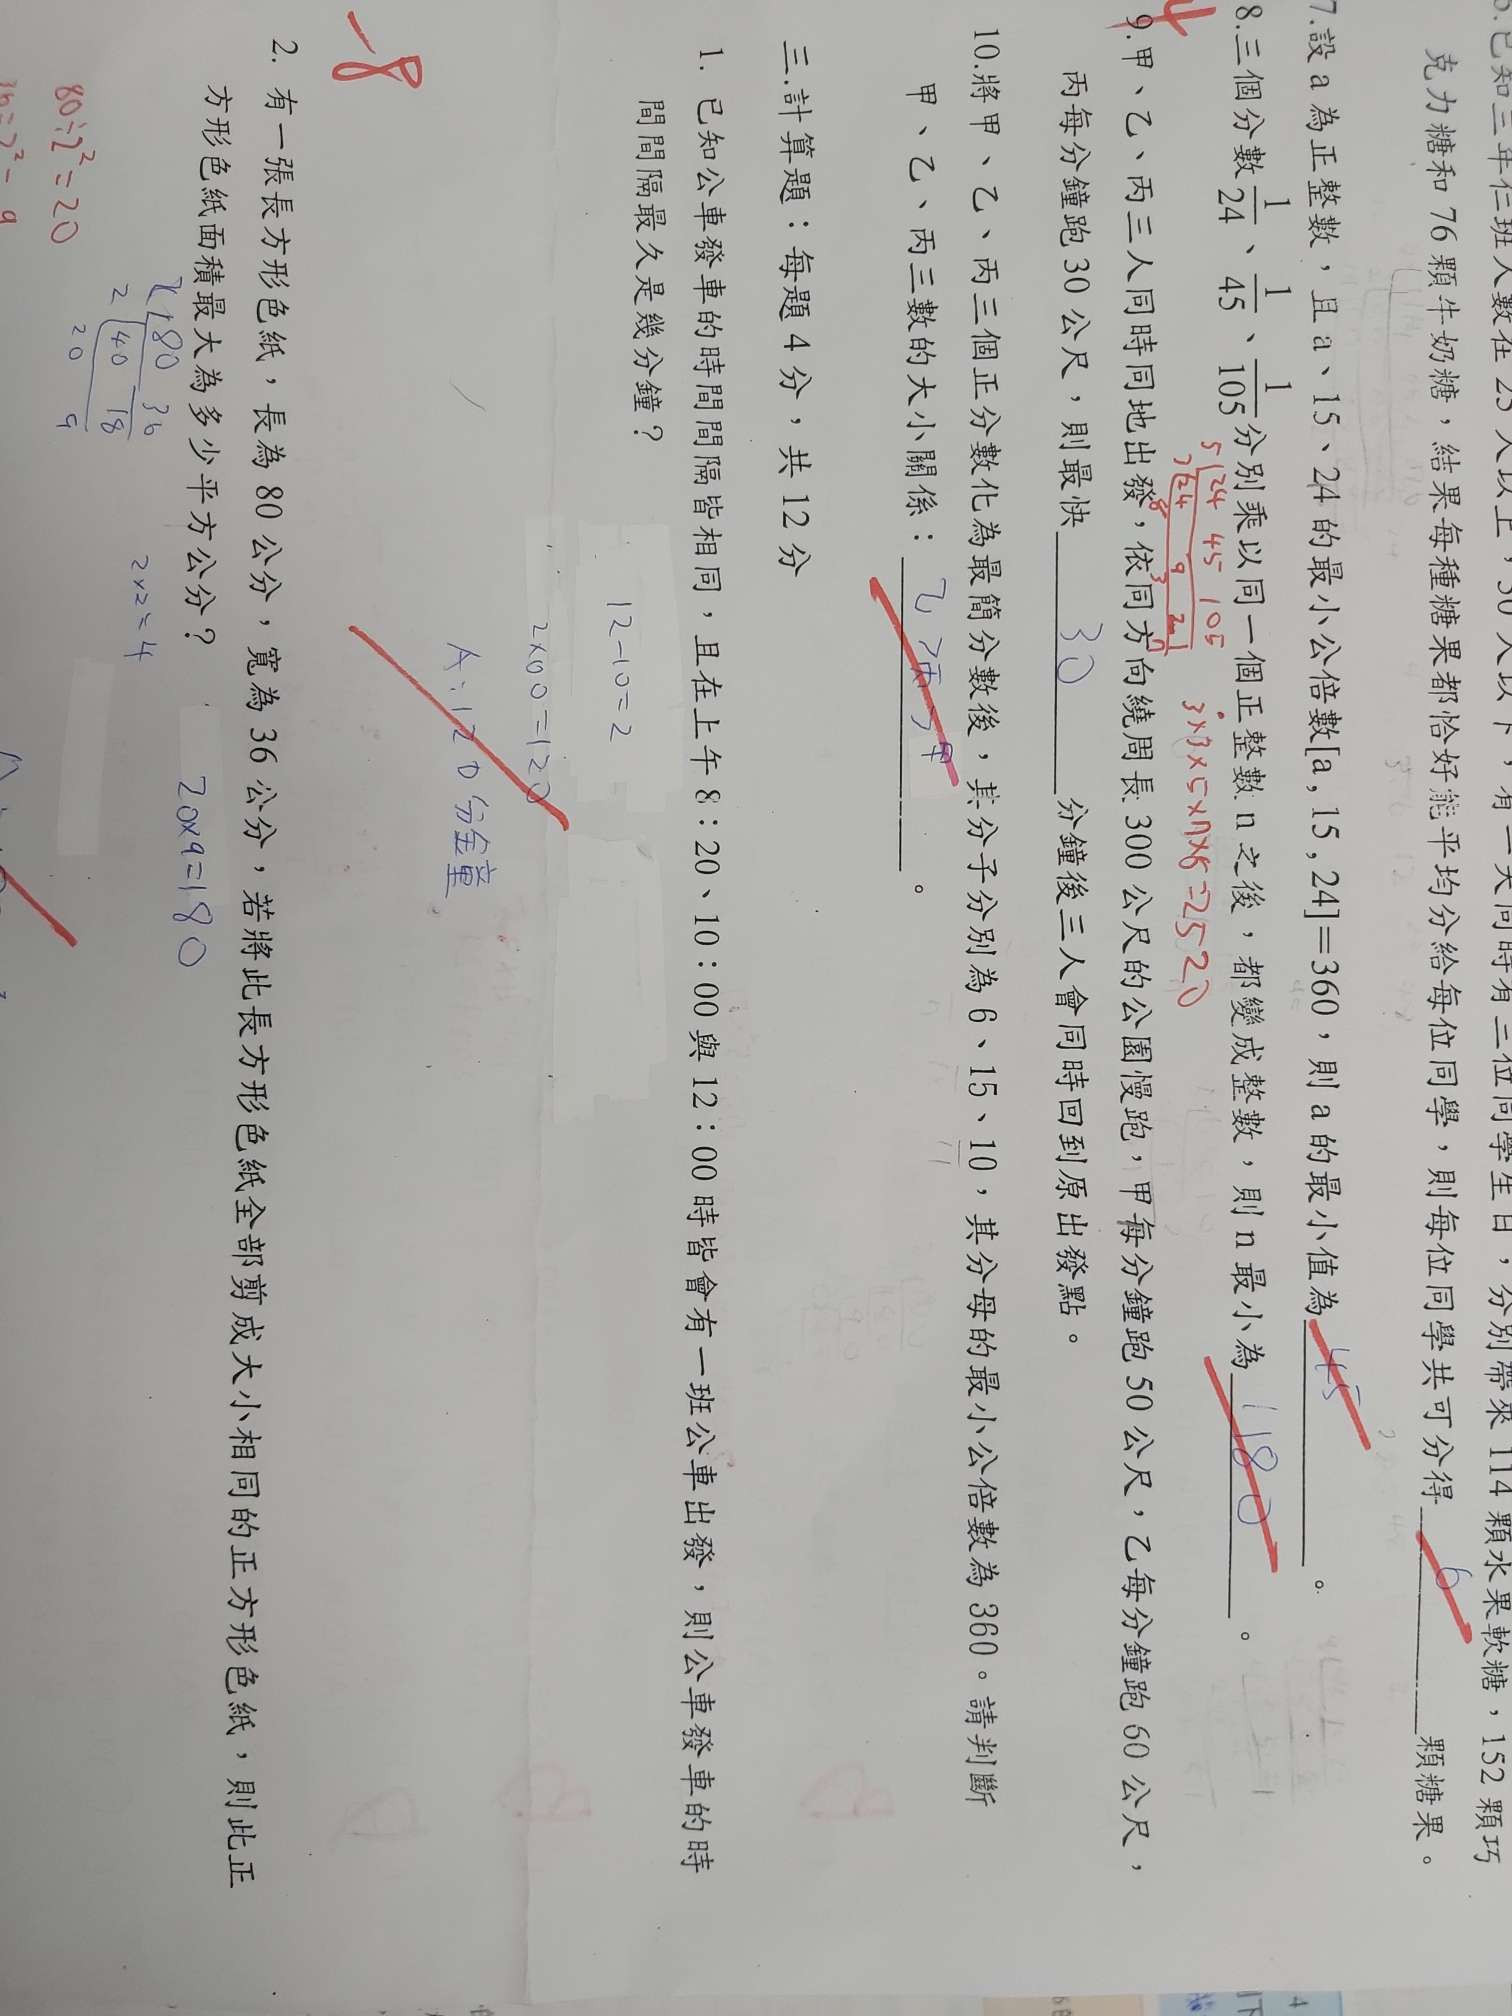 6.已知三年仁班人數在 25 人以上，30 人以下，有一天同時有三位同學生日，分別帶來 114 顆水果軟糖，152 顆巧
克力糖和 76 顆牛奶糖，結果每種糖果都恰好能平均分給每位同學，則每位同學共可分得 6 顆糖果。
7.設 a 為正整數，且 a、15、24 的最小公倍數[a , 15 , 24]＝360，則 a 的最小值為 45 。
8.三個分數 1/24 、 1/45 、 1/105 分別乘以同一個正整數 n 之後，都變成整數，則 n 最小為 1180 。
5 24 45 105
3 24 9 21
8 3 7
3×3×5×7×8=2520
9.甲、乙、丙三人同時同地出發，依同方向繞周長 300 公尺的公園慢跑，甲每分鐘跑 50 公尺，乙每分鐘跑 60 公尺，
丙每分鐘跑 30 公尺，則最快 30 分鐘後三人會同時回到原出發點。
10.將甲、乙、丙三個正分數化為最簡分數後，其分子分別為 6、15、10，其分母的最小公倍數為 360。請判斷
甲、乙、丙三數的大小關係： 乙>丙>甲 。
三.計算題：每題 4 分，共 12 分
1. 已知公車發車的時間間隔皆相同，且在上午 8：20、10：00 與 12：00 時皆會有一班公車出發，則公車發車的時
間間隔最久是幾分鐘？
12-10=2
2×60=120
A:120分鐘
-8
2. 有一張長方形色紙，長為 80 公分，寬為 36 公分，若將此長方形色紙全部剪成大小相同的正方形色紙，則此正
方形色紙面積最大為多少平方公分？
20×9=180
2 80 36
2 40 18
20 9
2×2=4
80÷2²=20